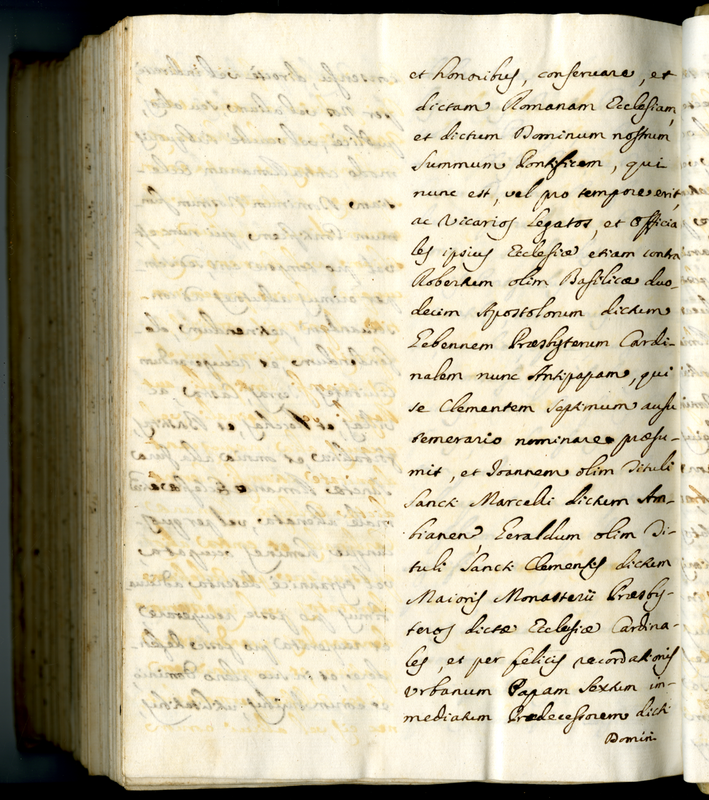 et honoribus, conseruare, et
dictam Romanam Ecclesiam,
et dictum Dominum nostrum
Summum Pontificem, qui
nunc est, vel pro tempore erit,
ac Vicarios Legatos, et Officia
les ipsius Ecclesiæ etiam contra
Robertum olim Basilicæ duo-
decim Apostolorum dictum
Gebennem Præsbyterum Cardi-
nalem nunc Antipapam, qui
se Clementem septimum ausu
temerario nominare præsu-
mit, et Joannem olim Tituli
Sancti Marcelli dictum Am-
bianen, Geraldum olim Ti-
tuli Sancti Clementis dictum
Maioris Monasterii Præsby-
teros dictæ Ecclesiæ Cardina-
les, et per felicis recordationis
Vrbanum Papam Sextum im-
mediatum Prædecessorem dicti
Domini